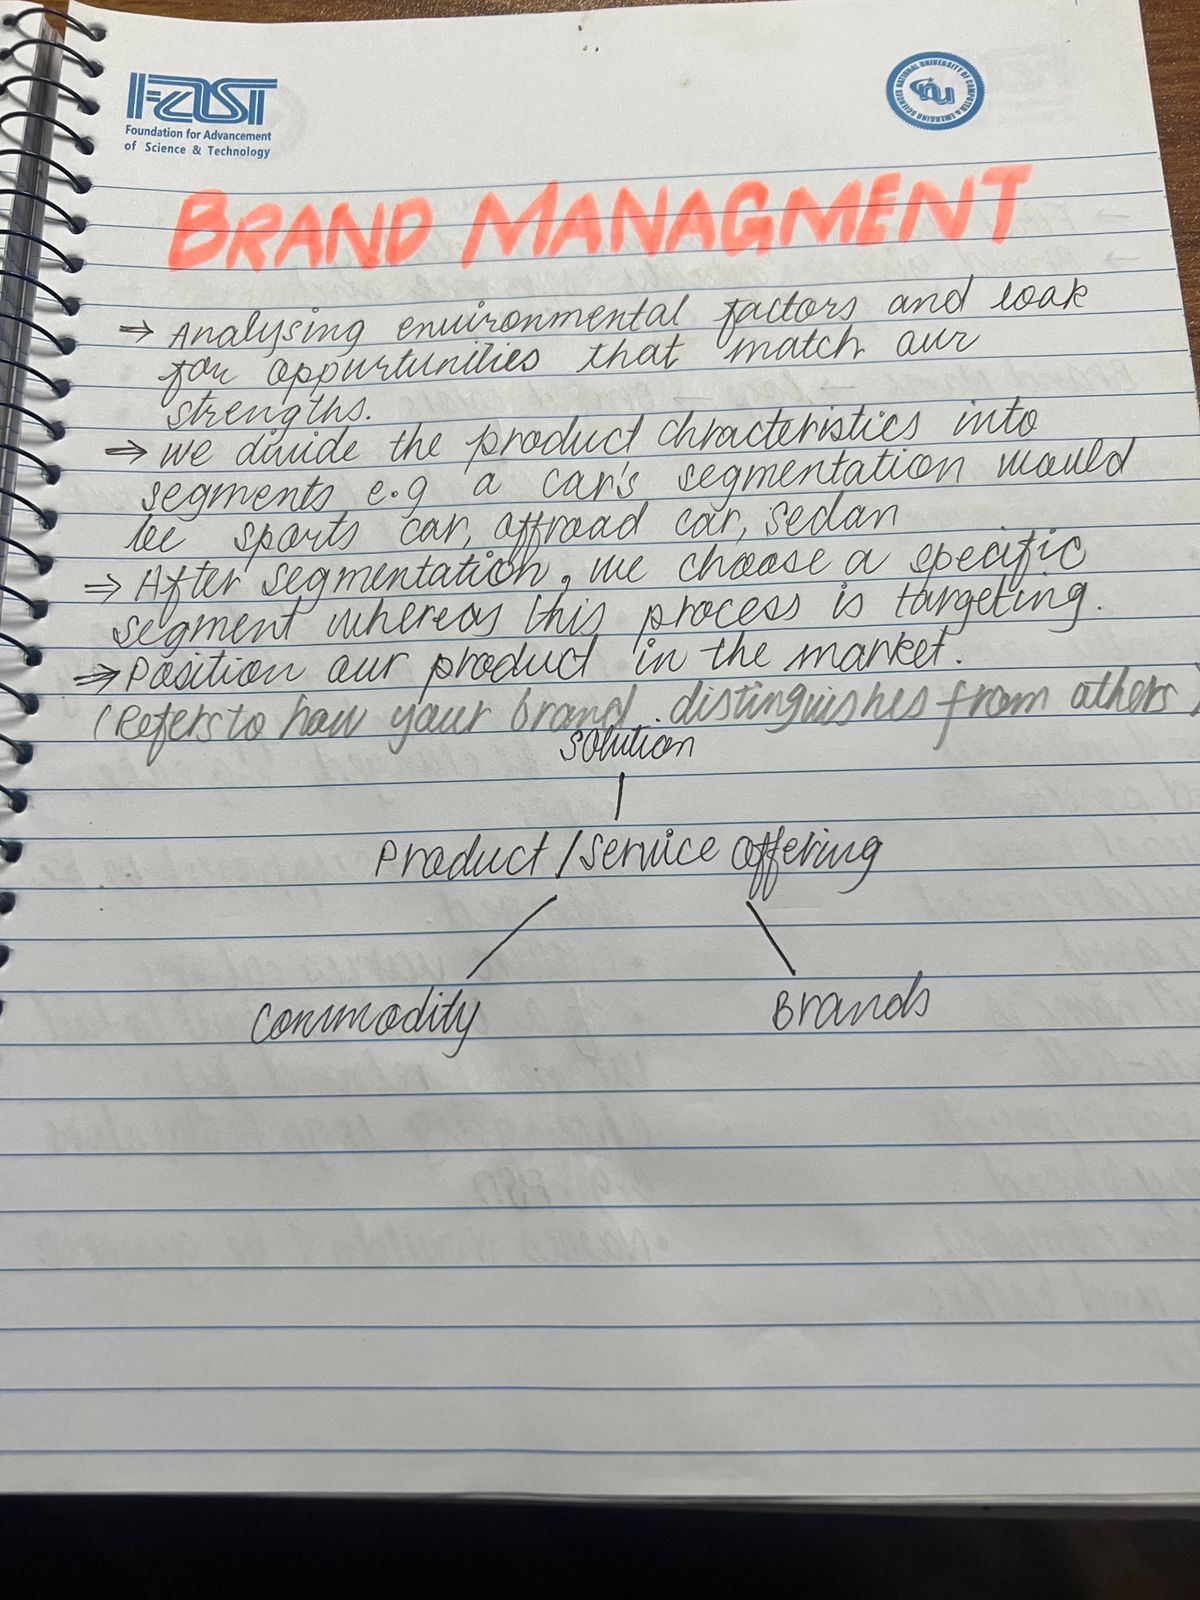 FAST
Foundation for Advancement
of Science & Technology
NATIONAL UNIVERSITY OF COMPUTER & EMERGING SCIENCES
nu
BRAND MANAGMENT
⇒ Analysing environmental factors and look
for oppurtunities that match our
strengths.
⇒ we divide the product chracteristics into
segments e.g a car's segmentation would
be sports car, offroad car, sedan
⇒ After segmentation, we choose a specific
segment whereas this process is targeting.
⇒ Position our product in the market.
(Refers to how your brand distinguishes from others)
Solution
Product/Service offering
Commodity Brands